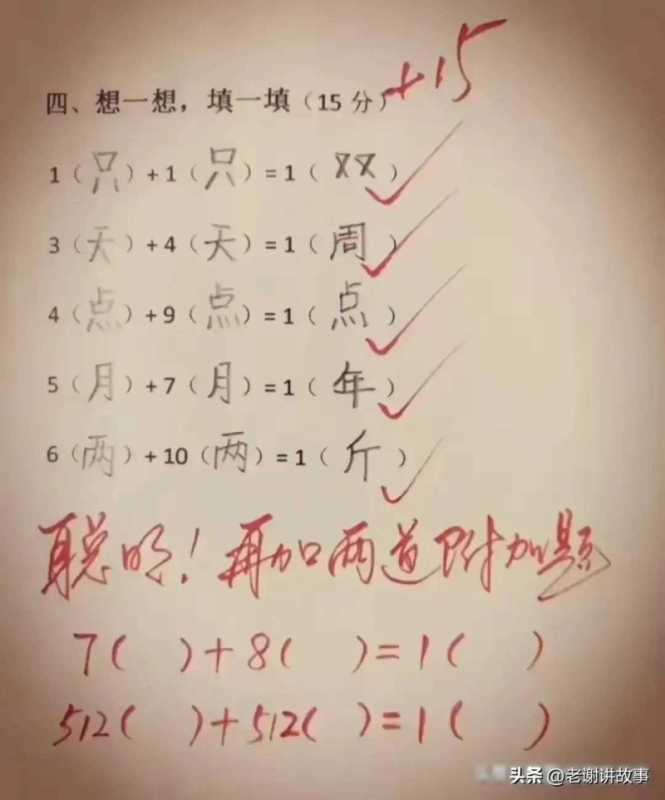 四、想一想，填一填（15 分） +15
1（只）+1（只）=1（双）
3（天）+4（天）=1（周）
4（点）+9（点）=1（点）
5（月）+7（月）=1（年）
6（两）+10（两）=1（斤）
聪明！再加两道附加题
7(   )+8(   )=1(   )
512(   )+512(   )=1(   )
头条 @老谢讲故事